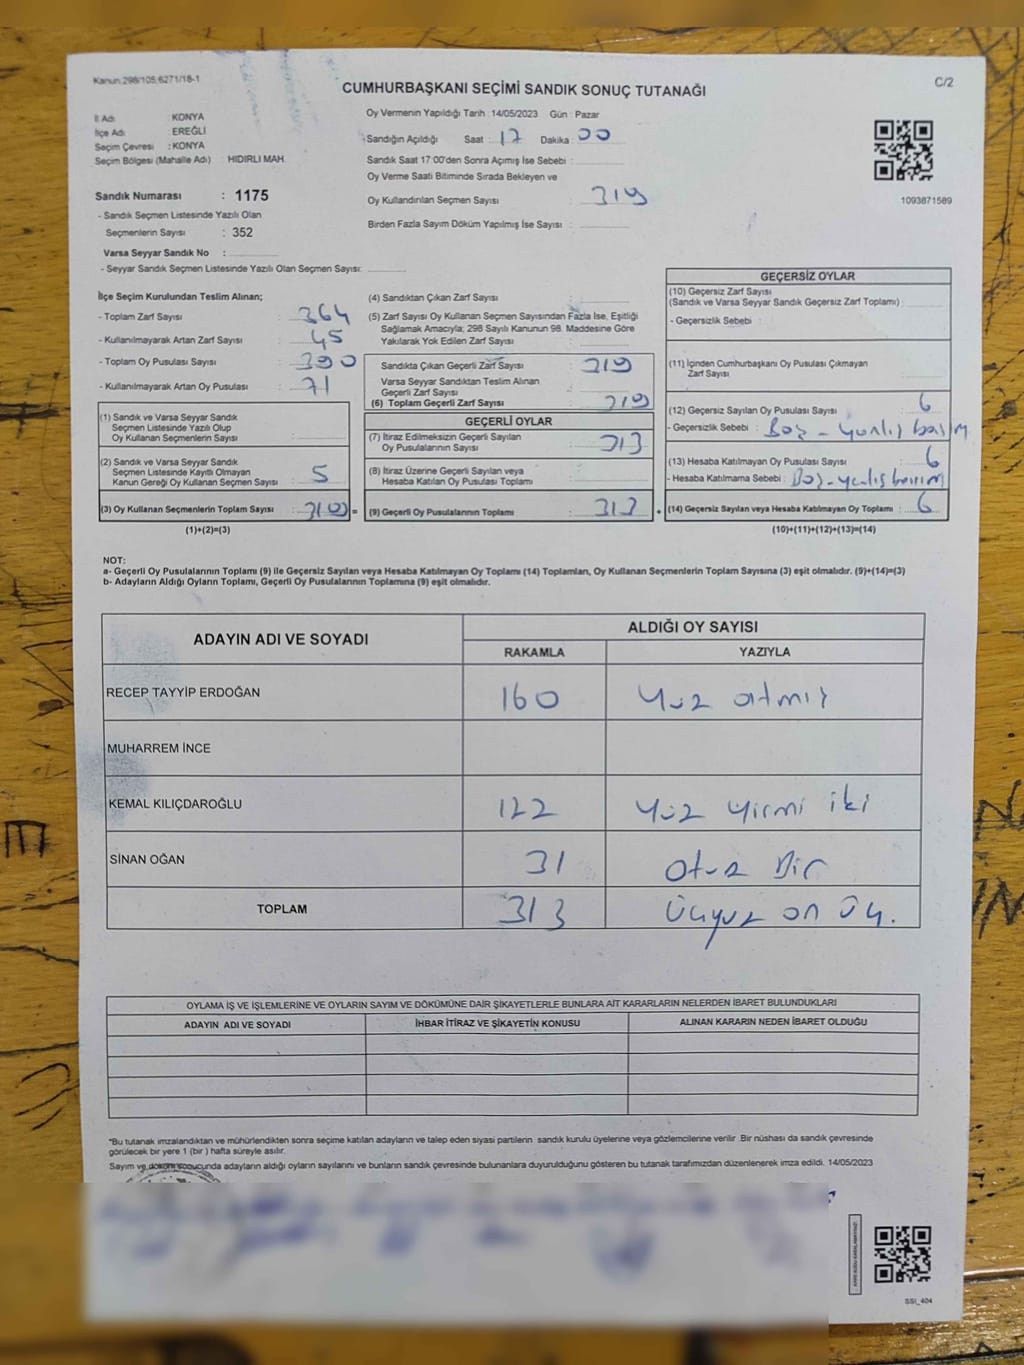 Kanun:298/105;6271/18-1
C/2
CUMHURBAŞKANI SEÇİMİ SANDIK SONUÇ TUTANAĞI
İl Adı : KONYA
İlçe Adı : EREĞLİ
Seçim Çevresi : KONYA
Seçim Bölgesi (Mahalle Adı) HIDIRLI MAH.
Sandık Numarası : 1175
- Sandık Seçmen Listesinde Yazılı Olan
Seçmenlerin Sayısı : 352
Varsa Seyyar Sandık No :
- Seyyar Sandık Seçmen Listesinde Yazılı Olan Seçmen Sayısı:
Oy Vermenin Yapıldığı Tarih :14/05/2023 Gün : Pazar
Sandığın Açıldığı Saat : 17 Dakika : 00
Sandık Saat 17:00'den Sonra Açımış İse Sebebi :
Oy Verme Saati Bitiminde Sırada Bekleyen ve
Oy Kullandırılan Seçmen Sayısı : 319
Birden Fazla Sayım Döküm Yapılmış İse Sayısı :
1093871589
İlçe Seçim Kurulundan Teslim Alınan;
- Toplam Zarf Sayısı : 364
- Kullanılmayarak Artan Zarf Sayısı : 45
- Toplam Oy Pusulası Sayısı : 390
- Kullanılmayarak Artan Oy Pusulası : 71
(1) Sandık ve Varsa Seyyar Sandık
Seçmen Listesinde Yazılı Olup
Oy Kullanan Seçmenlerin Sayısı :
(2) Sandık ve Varsa Seyyar Sandık
Seçmen Listesinde Kayıtlı Olmayan
Kanun Gereği Oy Kullanan Seçmen Sayısı : 5
(3) Oy Kullanan Seçmenlerin Toplam Sayısı : =
(1)+(2)=(3)
(4) Sandıktan Çıkan Zarf Sayısı :
(5) Zarf Sayısı Oy Kullanan Seçmen Sayısından Fazla İse, Eşitliği
Sağlamak Amacıyla; 298 Sayılı Kanunun 98. Maddesine Göre
Yakılarak Yok Edilen Zarf Sayısı :
Sandıkta Çıkan Geçerli Zarf Sayısı : 319
Varsa Seyyar Sandıktan Teslim Alınan
Geçerli Zarf Sayısı :
(6) Toplam Geçerli Zarf Sayısı : 319
GEÇERLİ OYLAR
(7) İtiraz Edilmeksizin Geçerli Sayılan
Oy Pusulalarının Sayısı : 313
(8) İtiraz Üzerine Geçerli Sayılan veya
Hesaba Katılan Oy Pusulası Toplamı :
(9) Geçerli Oy Pusulalarının Toplamı : 313 +
GEÇERSİZ OYLAR
(10) Geçersiz Zarf Sayısı
(Sandık ve Varsa Seyyar Sandık Geçersiz Zarf Toplamı) :
- Geçersizlik Sebebi :
(11) İçinden Cumhurbaşkanı Oy Pusulası Çıkmayan
Zarf Sayısı :
(12) Geçersiz Sayılan Oy Pusulası Sayısı : 6
- Geçersizlik Sebebi : Boş - yanlış basım
(13) Hesaba Katılmayan Oy Pusulası Sayısı : 6
- Hesaba Katılmama Sebebi : Boş-yanlış basım
(14) Geçersiz Sayılan veya Hesaba Katılmayan Oy Toplamı : 6
(10)+(11)+(12)+(13)=(14)
NOT:
a- Geçerli Oy Pusulalarının Toplamı (9) ile Geçersiz Sayılan veya Hesaba Katılmayan Oy Toplamı (14) Toplamları, Oy Kullanan Seçmenlerin Toplam Sayısına (3) eşit olmalıdır. (9)+(14)=(3)
b- Adayların Aldığı Oyların Toplamı, Geçerli Oy Pusulalarının Toplamına (9) eşit olmalıdır.
ADAYIN ADI VE SOYADI ALDIĞI OY SAYISI
RAKAMLA YAZIYLA
RECEP TAYYİP ERDOĞAN 160 Yüz atmış
MUHARREM İNCE
KEMAL KILIÇDAROĞLU 122 Yüz yirmi iki
SİNAN OĞAN 31 otuz Bir
TOPLAM 313 Üçyüz on üç.
OYLAMA İŞ VE İŞLEMLERİNE VE OYLARIN SAYIM VE DÖKÜMÜNE DAİR ŞİKAYETLERLE BUNLARA AİT KARARLARIN NELERDEN İBARET BULUNDUKLARI
ADAYIN ADI VE SOYADI İHBAR İTİRAZ VE ŞİKAYETİN KONUSU ALINAN KARARIN NEDEN İBARET OLDUĞU
*Bu tutanak imzalandıktan ve mühürlendikten sonra seçime katılan adayların ve talep eden siyasi partilerin sandık kurulu üyelerine veya gözlemcilerine verilir .Bir nüshası da sandık çevresinde
görülecek bir yere 1 (bir ) hafta süreyle asılır.
Sayım ve döküm sonucunda adayların aldığı oyların sayılarını ve bunların sandık çevresinde bulunanlara duyurulduğunu gösteren bu tutanak tarafımızdan düzenlenerek imza edildi. 14/05/2023
SSI_404